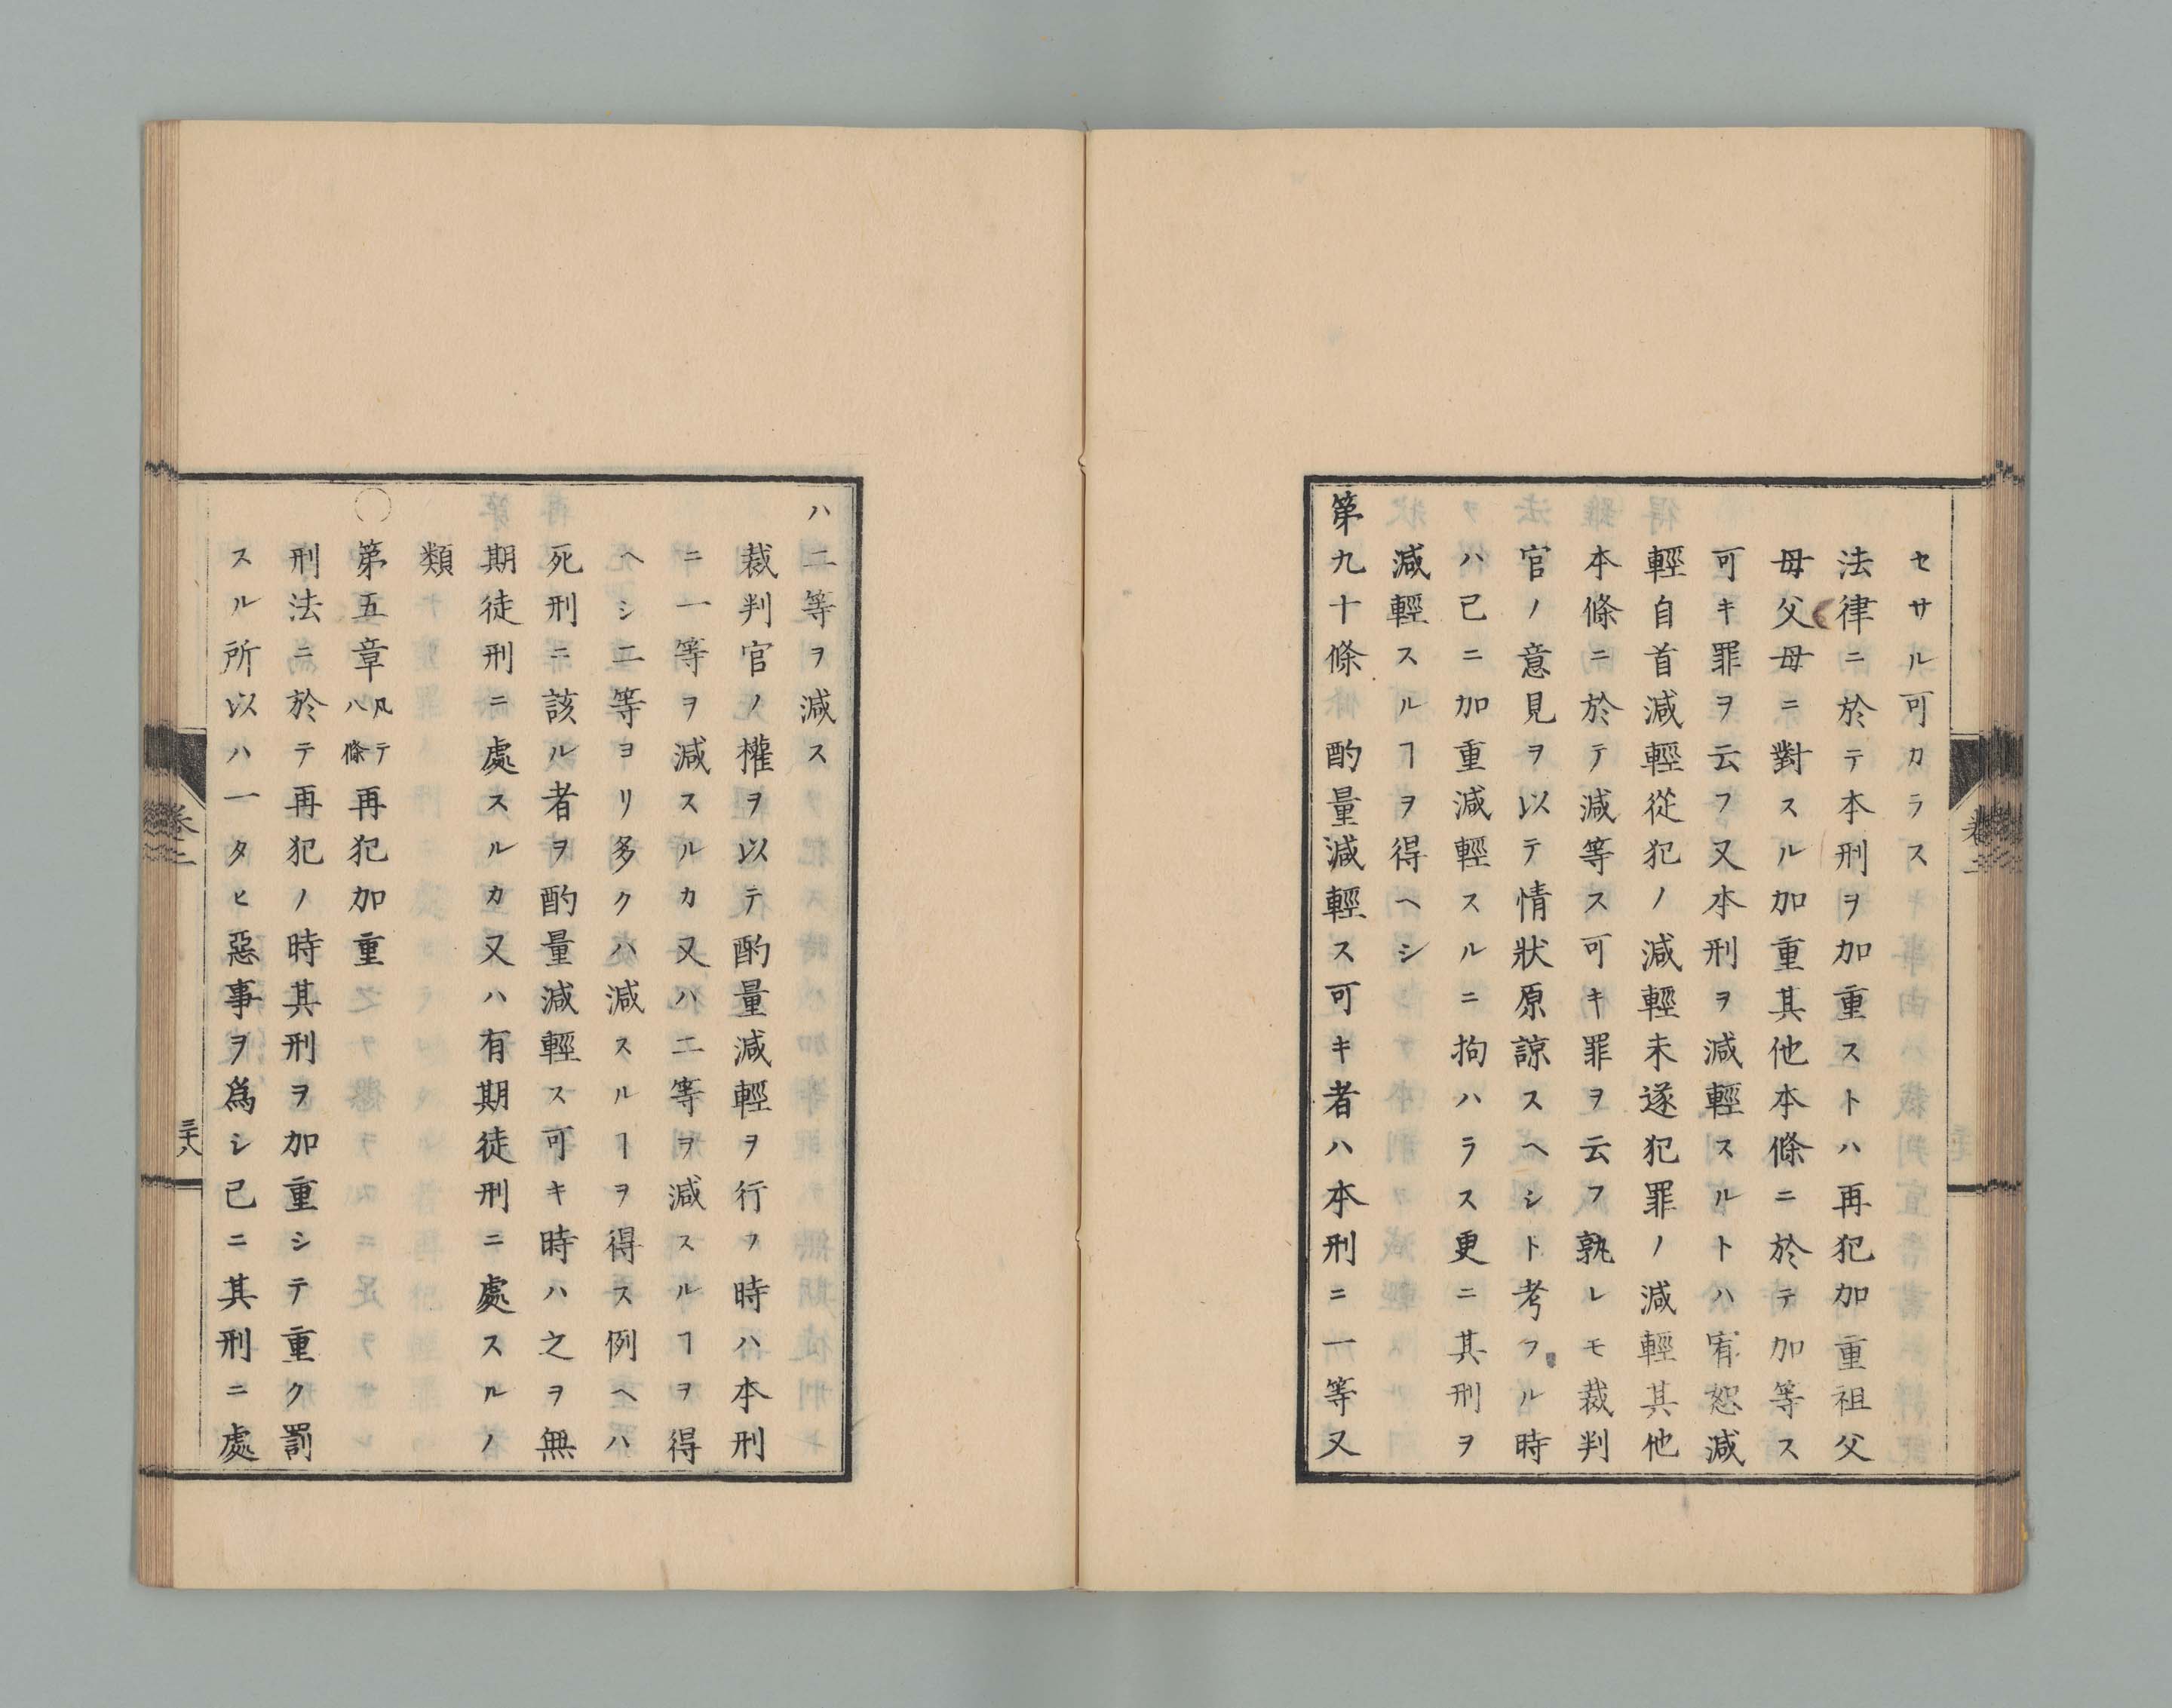 セサル可カラス
法律ニ於テ本刑ヲ加重ストハ再犯加重祖父
母父母ニ對スル加重其他本條ニ於テ加等ス
可キ罪ヲ云フ又本刑ヲ減輕スルトハ宥恕減
輕自首減輕從犯ノ減輕未遂犯罪ノ減輕其他
本條ニ於テ減等ス可キ罪ヲ云フ孰レモ裁判
官ノ意見ヲ以テ情狀原諒スヘシト考フル時
ハ已ニ加重減輕スルニ拘ハラス更ニ其刑ヲ
減輕スルヿヲ得ヘシ
第九十條 酌量減輕ス可キ者ハ本刑ニ一等又
ハ二等ヲ減ス
裁判官ノ權ヲ以テ酌量減輕ヲ行フ時ハ本刑
ニ一等ヲ減スルカ又ハ二等ヲ減スルヿヲ得
ヘシ二等ヨリ多クハ減スルヿヲ得ス例ヘハ
死刑ニ該ル者ヲ酌量減輕ス可キ時ハ之ヲ無
期徒刑ニ處スルカ又ハ有期徒刑ニ處スルノ
類
○第五章 凡テ八條 再犯加重
刑法ニ於テ再犯ノ時其刑ヲ加重シテ重ク罰
スル所以ハ一タヒ惡事ヲ爲シ已ニ其刑ニ處
卷二
三十八